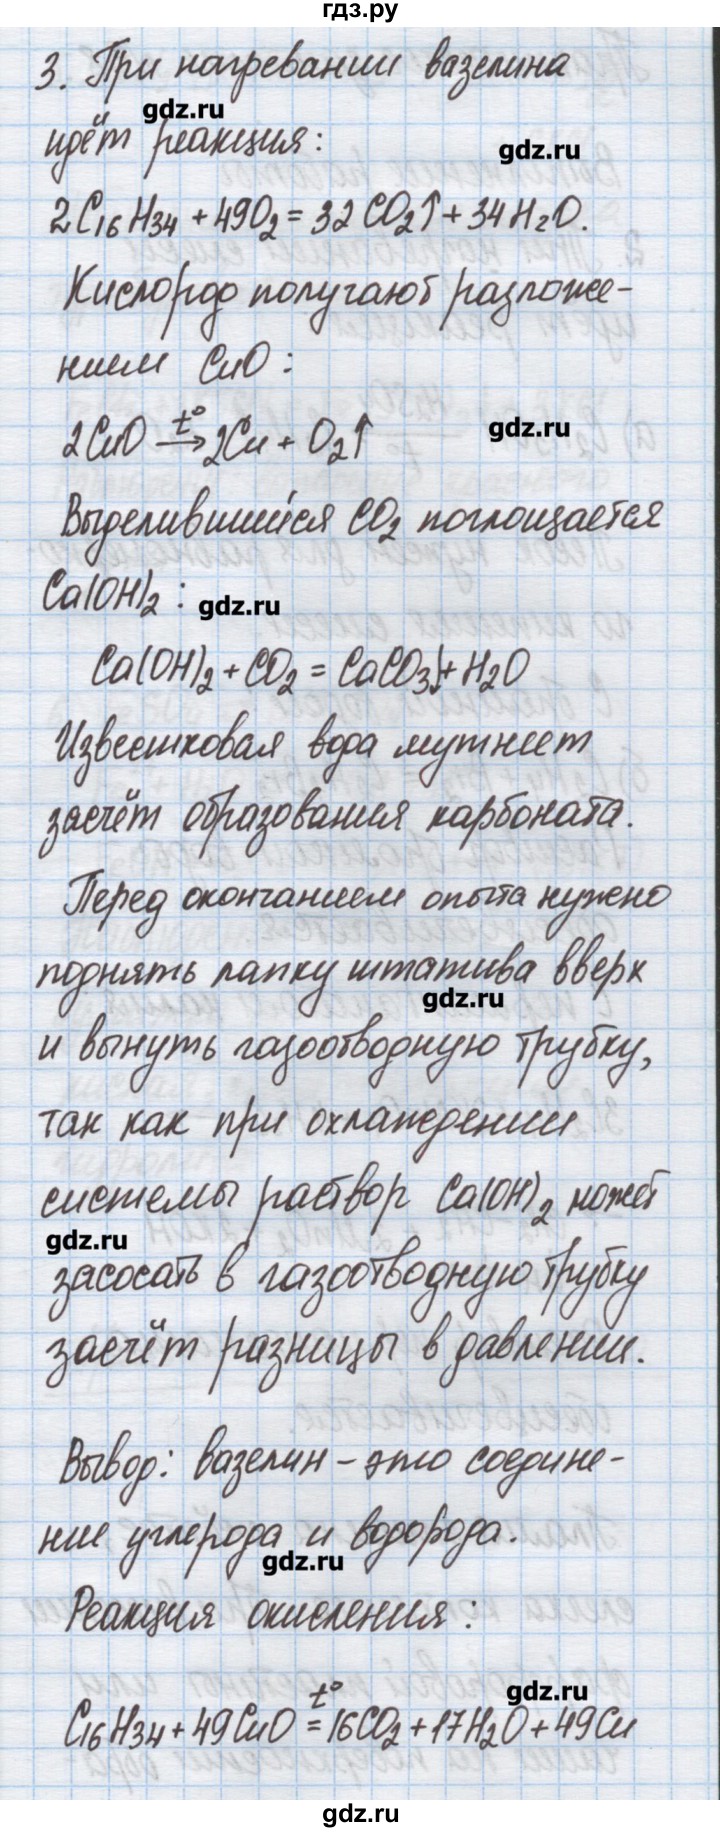 гдз.ру
3. При нагревании вазелина
gdz.ru
идёт реакция:
gdz.ru
2C₁₆H₃₄ + 49O₂ = 32CO₂↑ + 34H₂O.
Кислород получают разложе-
нием CuO:
2CuO —t°→ 2Cu + O₂↑
gdz.ru
Выделившийся CO₂ поглощается
Ca(OH)₂:
gdz.ru
Ca(OH)₂ + CO₂ = CaCO₃↓ + H₂O
Известковая вода мутнеет
засчёт образования карбоната.
Перед окончанием опыта нужно
поднять лапку штатива вверх
gdz.ru
и вынуть газоотводную трубку,
так как при охлаждении
системы раствор Ca(OH)₂ может
gdz.ru
засосать в газоотводную трубку
засчёт разницы в давлении.
Вывод: вазелин – это соедине-
ние углерода и водорода.
gdz.ru
Реакция окисления:
gdz.ru
C₁₆H₃₄ + 49CuO =t° 16CO₂ + 17H₂O + 49Cu
gdz.ru